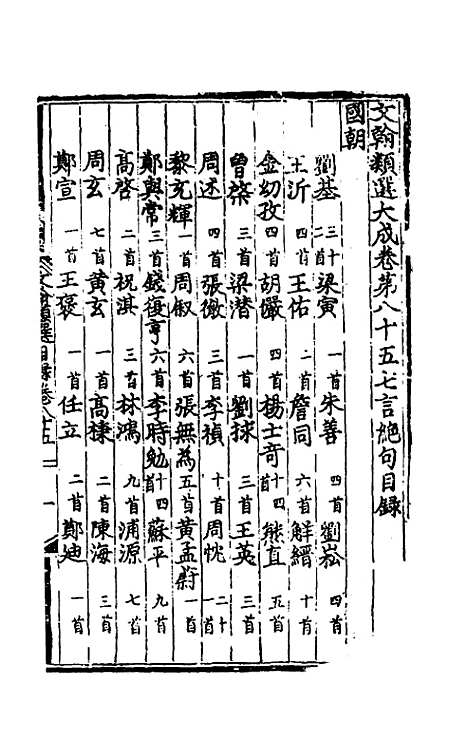 文翰類選大成卷第八十五七言絶句目録
國朝
劉基 三十二首 梁寅 一首 朱善 四首 劉崧 四首
王沂 四首 王佑 二首 詹同 六首 解縉 十首
金幼孜 四首 胡儼 四首 楊士奇 十四首 熊直 五首
曾棨 三首 梁潛 一首 劉球 三首 王英 三首
周述 四首 張徹 三首 李禎 十首 周忱 二十一首
黎克輝 一首 周叙 六首 張無為 五首 黃孟蔚
鄭與常 三首 錢復亨 六首 李時勉 十四首 蘇平 九首
高啓 二首 祝淇 三首 林鴻 九首 浦源 七首
周玄 七首 黃玄 一首 高棅 二首 陳海 三首
鄭宣 一首 王褒 一首 任立 二首 鄭迪 一首